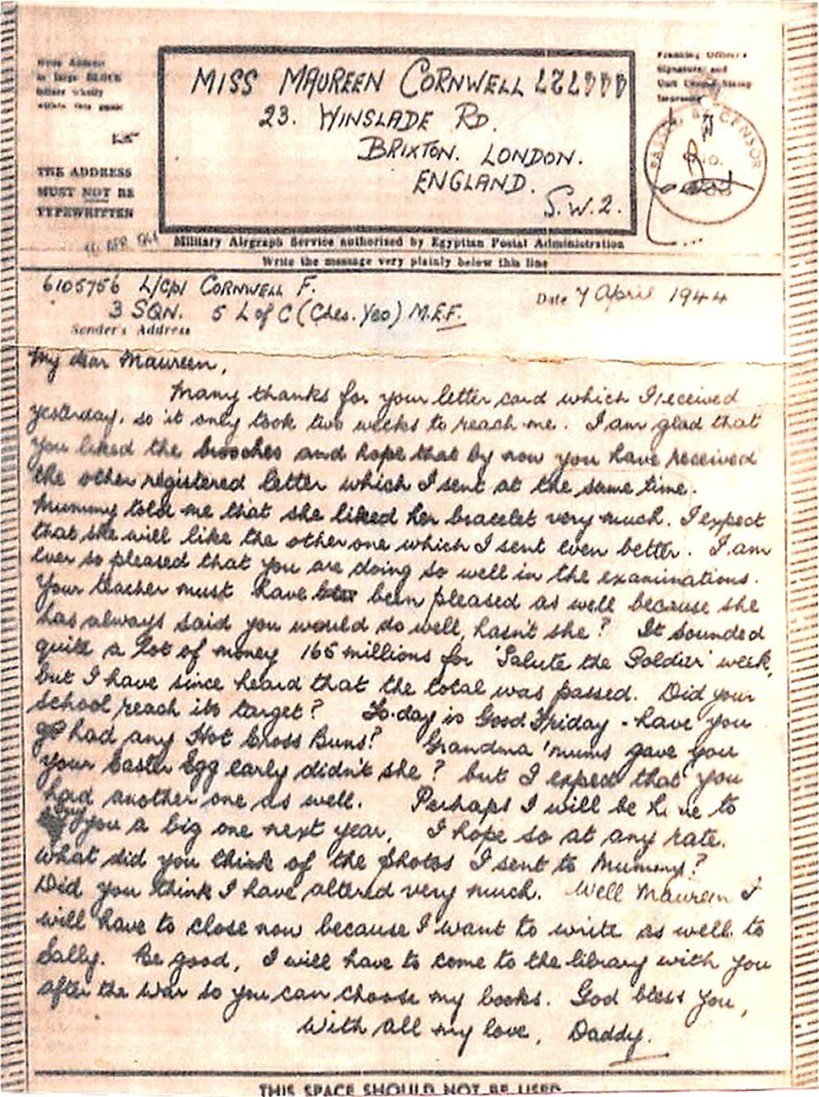 Write Address
in large BLOCK
letters wholly
within this panel
THE ADDRESS
MUST NOT BE
TYPEWRITTEN
MISS MAUREEN CORNWELL 444727
23. WINSLADE RD.
BRIXTON. LONDON.
ENGLAND.
S.W.2.
Franking Officer's
Signature and
Unit Censor Stamp
PASSED BY CENSOR
NO.
APR 1944
Military Airgraph Service authorised by Egyptian Postal Administration
Write the message very plainly below this line
6105756 L/Cpl CORNWELL F.
3 SQN. 5 L of C (Ches. Yeo) M.E.F.
Sender's Address
Date 7 April 1944
My dear Maureen,
Many thanks for your letter card which I received
yesterday, so it only took two weeks to reach me. I am glad that
you liked the brooches and hope that by now you have received
the other registered letter which I sent at the same time.
Mummy told me that she liked her bracelet very much. I expect
that she will like the other one which I sent even better. I am
ever so pleased that you are doing so well in the examinations.
Your teacher must have been pleased as well because she
has always said you would do well, hasn't she? It sounded
quite a lot of money 165 millions for 'Salute the Soldier' week,
but I have since heard that the total was passed. Did your
school reach its target? To-day is Good Friday - have you
had any Hot Cross Buns? Grandma 'mums gave you
your Easter Egg early didn't she? but I expect that you
had another one as well. Perhaps I will be home to
you a big one next year, I hope so at any rate.
What did you think of the photos I sent to Mummy?
Did you think I have altered very much. Well Maureen I
will have to close now because I want to write as well to
Sally. Be good, I will have to come to the library with you
after the war so you can choose my books. God bless you,
With all my love, Daddy.
THIS SPACE SHOULD NOT BE USED